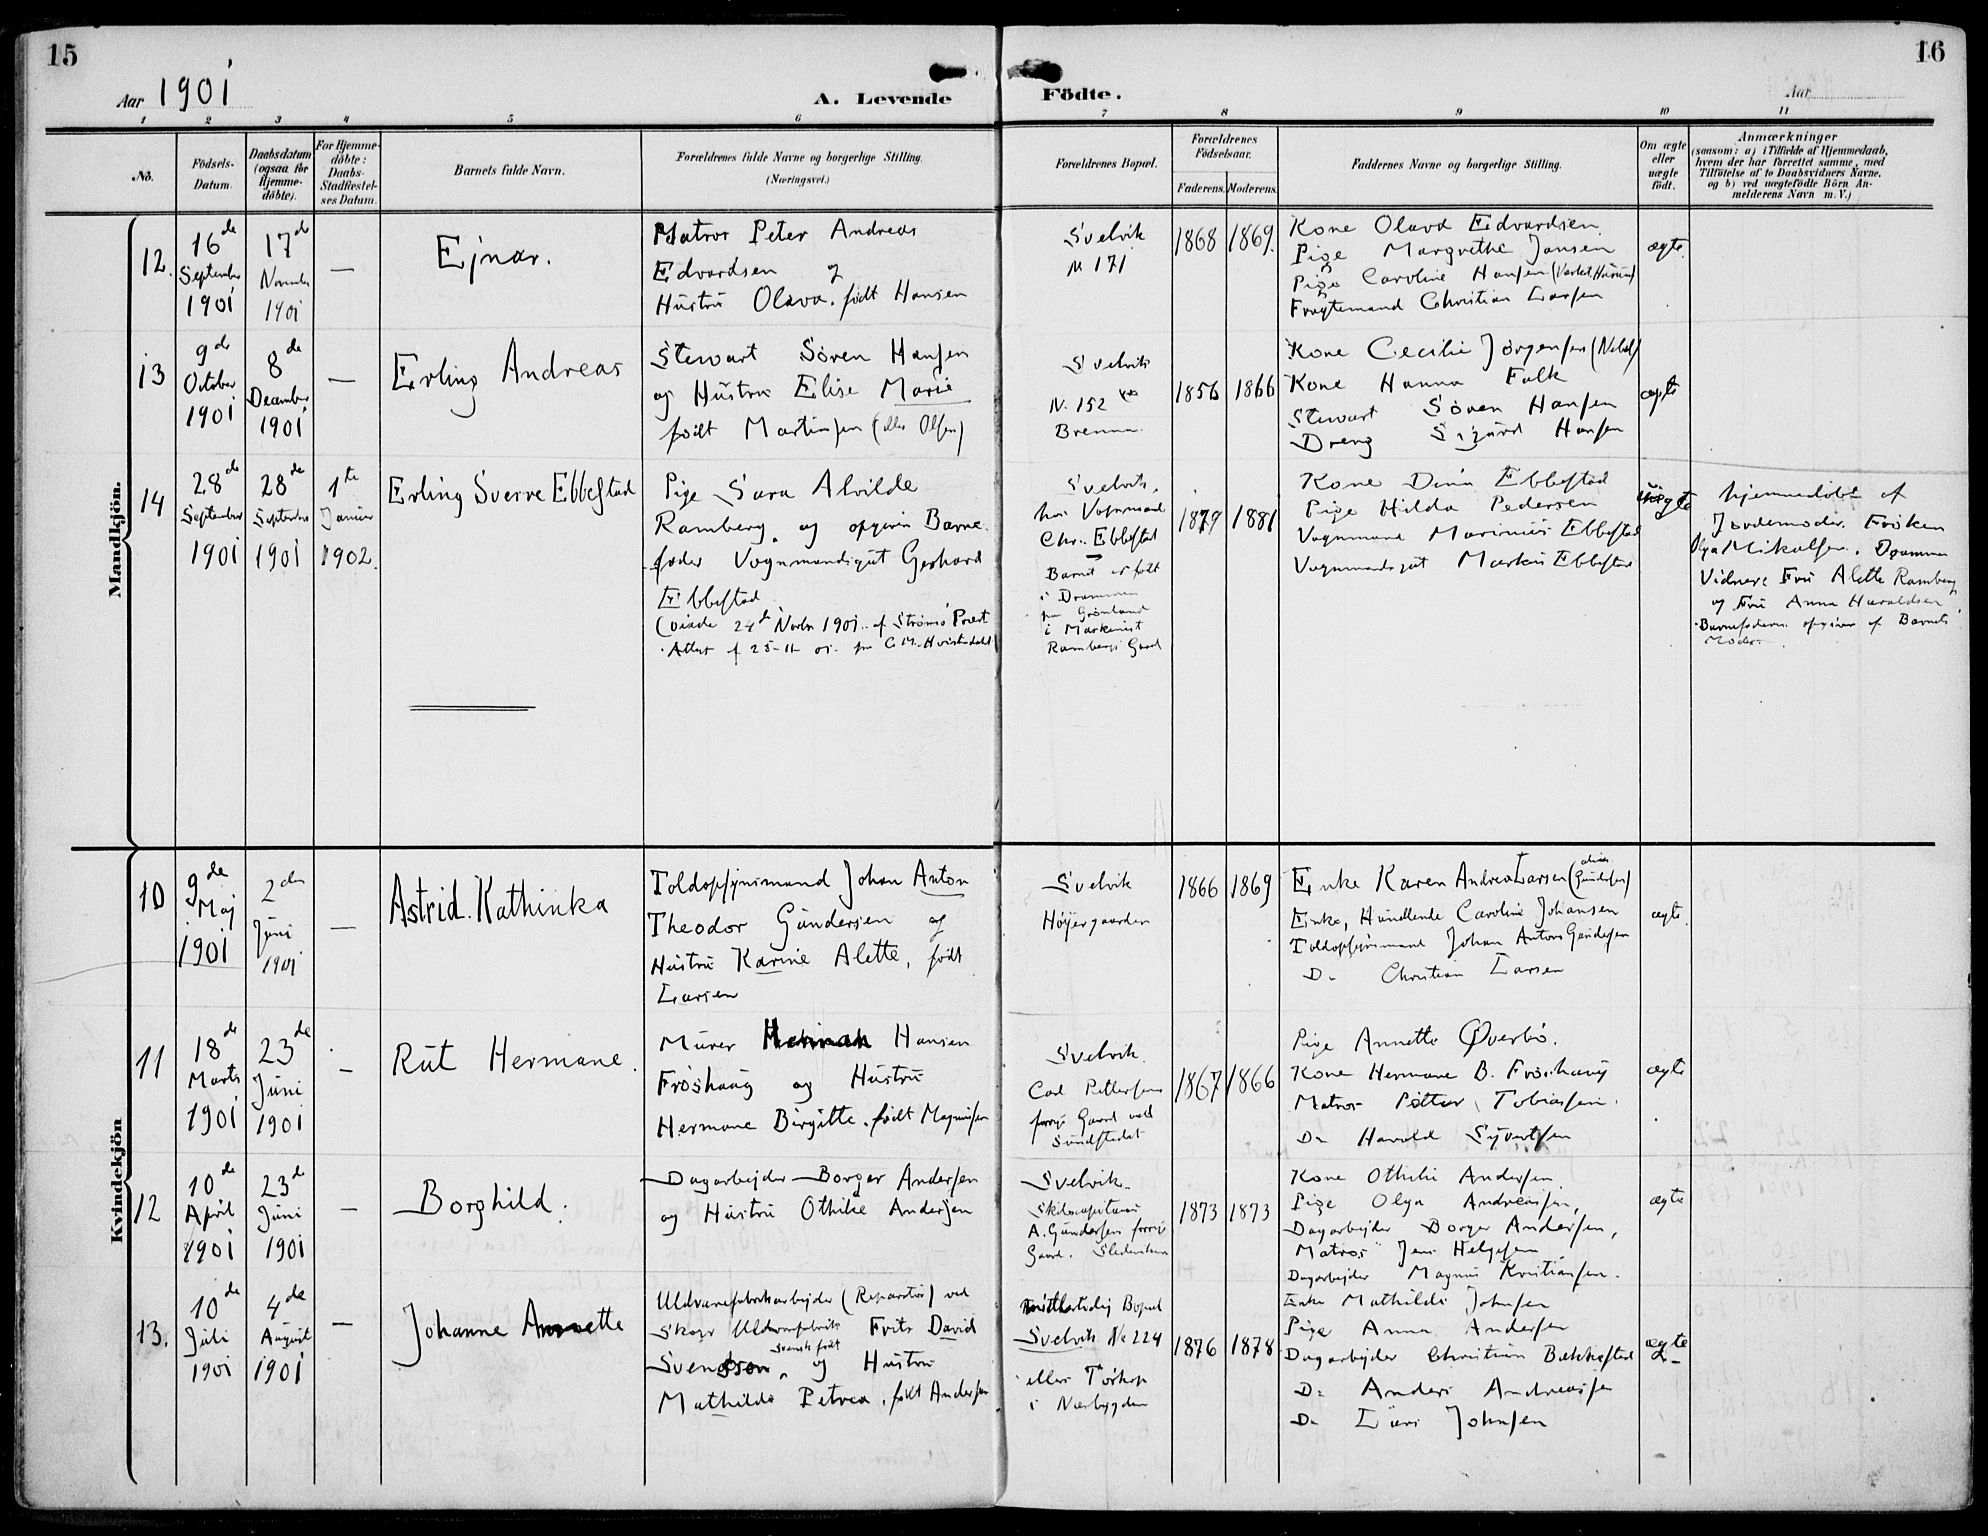 15
16
Aar 1901
A. Levende
Födte.
Aar
1 2 3 4 5 6 7 8 9 10 11
No.
Födsels-
Datum.
Daabsdatum
(ogsaa for
Hjemme-
döbte).
For Hjemme-
döbte:
Daabs-
Stadfæstel-
ses Datum.
Barnets fulde Navn.
Forældrenes fulde Navne og borgerlige Stilling.
(Næringsvei.)
Forældrenes Bopæl.
Forældrenes
Födselsaar.
Faderens.
Moderens.
Faddernes Navne og borgerlige Stilling.
Om ægte
eller
uægte
födt.
Anmærkninger
(saasom: a) i Tilfælde af Hjemmedaab,
hvem der har forrettet samme, med
Tilföielse af to Daabsvidners Navne.
og b) ved uægtefödte Börn An-
melderens Navn m. V.)
Mandkjön.
12.
16de
September
1901
17de
November
1901
—
Ejnar.
Matros Peter Andreas
Edvardsen og
Hustru Olava. født Hansen
Svelvik
N 171
1868
1869.
Kone Olava Edvardsen
Pige Margrethe Jansen
Pige Caroline Hansen
Fragtemand Christian Larsen
ægte.
13
9de
October
1901
8de
December
1901
—
Erling Andreas
Stewart Søren Hansen
og Hustru Elise Marie
født Martinsen (eller Olsen)
Svelvik
N. 152
Brenna.
1856
1866
Kone Cecilie Jørgensen
Kone Hanna Falk
Stewart Søren Hansen
Dreng Sigurd Hansen
ægte
14
28de
September
1901
28de
September
1901
1te
Januar
1902.
Erling Sverre Ebbestad
Pige Sara Alvilde
Ramberg. og opgiven Barne-
fader Vognmandsgut Gerhard
Ebbestad
(viede 24de Novbr 1901. af Strømsø Præst
Attest af 25-11-01. fra
Svelvik.
hos Vognmand
Chr. Ebbestad
Barnet er født
i Drammen
paa Grønland
i
Rambergs Gaard
1879
1881
Kone Dina Ebbestad
Pige Hilda Pedersen
Vognmand Marinius Ebbestad
Vognmandsgut Markus Ebbestad
uægte
hjemmedøbt af
Jordemoder. Frøken
Olga Mikalsen. Drammen
Vidner: Fru Alette Ramberg
og Fru Anna Haraldsen
Barnefaderen opgiven af Barnets
Moder.
Kvindekjön
10
9de
Maj
1901
2den
Juni
1901
—
Astrid. Kathinka
Toldopsynsmand Johan Anton
Theodor Gundersen og
Hustru Karine Alette, født
Larsen
Svelvik
Høyergaarden
1866
1869
Enke Karen Andrea Larsen (Gundersen)
Enke, Handlende Caroline Johansen
Toldopsynsmand Johan Anton Gundersen
Do Christian Larsen
ægte.
11
18de
Marts
1901
23de
Juni
1901
—
Rut Hermane.
Murer Hansen
Frøshaug og Hustru
Hermane Birgitte. født Magnusen
Svelvik.
Carl Pettersens
forrige Gaard ved
Sundstedet
1867
1866
Pige Annette Øverbø.
Kone Hermane B. Frøshaug
Matros Petter Tobiassen.
Do Harald Syvertsen
ægte
12
10de
April
1901
23de
Juni
1901
—
Borghild.
Dagarbejder Borger Andersen
og Hustru Othilie Andersen
Svelvik.
Skibscaptain
A. Gundersens forrige
Gaard.
1873
1873
Kone Othilie Andersen
Pige Olga Andreassen,
Dagarbejder Borger Andersen,
Matros Jens Helgesen
Dagarbejder Magnus Kristiansen.
ægte
13.
10de
Juli
1901
4de
August
1901
—
Johanne Annette
Uldvarefabrikarbejder (Reparatør) ved
Skoger Uldvarefabrik Frits David
Svensk født
Svensson. og Hustru
Mathilde Petrea. født Andersen
midlertidig Bopæl
Svelvik No 224
ellers Tørkop
i Nesbygden
1876
1878
Enke Mathilde Johnsen
Pige Anna Andersen
Dagarbejder Christian Bekkestad
Do Anders Andreassen
Do Lars Johnsen
ægte